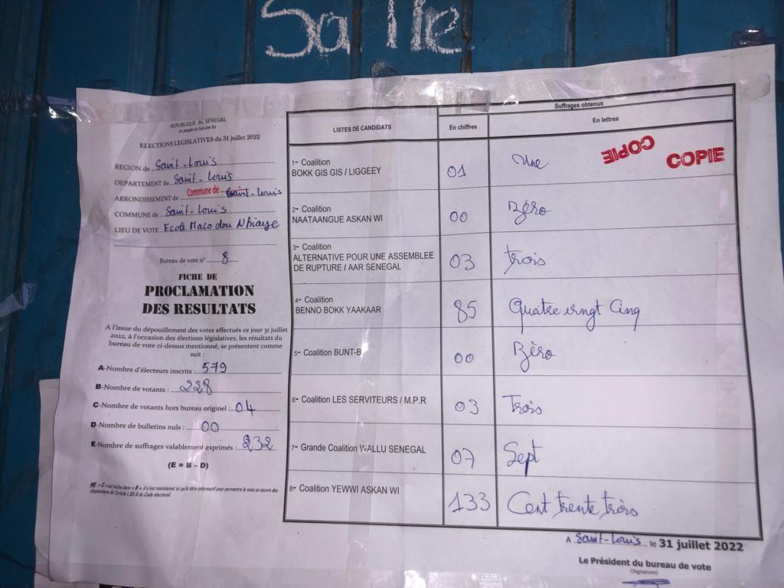 Salle
REPUBLIQUE du SENEGAL
ELECTIONS LEGISLATIVES du 31 juillet 2022
REGION de Saint-Louis
DEPARTEMENT de Saint-Louis
ARRONDISSEMENT de Commune de Saint-Louis
COMMUNE de Saint-Louis
LIEU DE VOTE Ecole Macodou Ndiaye
Bureau de vote n° 8
FICHE DE
PROCLAMATION
DES RESULTATS
A l'issue du dépouillement des votes effectués ce jour 31 juillet
2022, à l'occasion des élections législatives, les résultats du
bureau de vote ci-dessus mentionné, se présentent comme
suit :
A-Nombre d'électeurs inscrits : 579
B-Nombre de votants : 228
C-Nombre de votants hors bureau originel : 04
D-Nombre de bulletins nuls : 00
E-Nombre de suffrages valablement exprimés : 232
(E = B – D)
LISTES DE CANDIDATS
Suffrages obtenus
En chiffres
En lettres
COPIE
COPIE
1- Coalition
BOKK GIS GIS / LIGGEEY
01
Une
2- Coalition
NAATAANGUE ASKAN WI
00
Zéro
3- Coalition
ALTERNATIVE POUR UNE ASSEMBLEE
DE RUPTURE / AAR SENEGAL
03
trois
4- Coalition
BENNO BOKK YAAKAAR
85
Quatre vingt Cinq
5- Coalition BUNT-B
00
Zéro
6- Coalition LES SERVITEURS / M.P.R
03
Trois
7- Grande Coalition WALLU SENEGAL
07
Sept
8- Coalition YEWWI ASKAN WI
133
Cent trente trois
A Saint-Louis le 31 juillet 2022
Le Président du bureau de vote
(Signature)